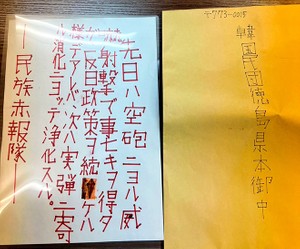 〒773-0015
韓国民団徳島県本御中
先日ハ空砲ニヨル威
射撃で事ナキヲ得タ
ガ反日政策ヲ続ケル
様デアレバ次ハ実弾ニ寄
ル消化ニヨッテ浄化スル。
ー民族赤報隊ー